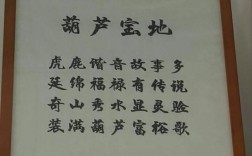 葫芦宝地
虎鹿谐音故事多
延绵福禄有传说
奇山秀水显灵验
装满葫芦富裕歌